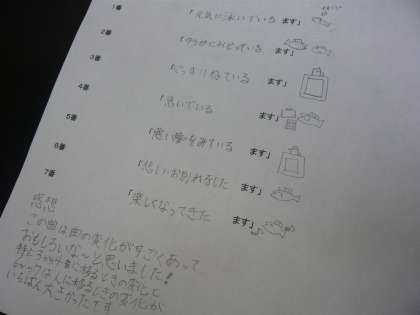 1番 「元気に泳いでいる ます」
2番 「ゆうがにおどっている ます」
3番 「ぐっすりねている ます」
4番 「急いでいる ます」
5番 「悪い夢をみている ます」
6番 「悲しいお別れをした ます」
7番 「楽しくなってきた ます」
感想
この曲は曲の変化がすごくあって
おもしろいな〜と思いました!
特に3から4番に移るときの変化と
いちばん大きかったです